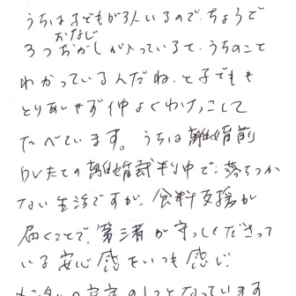 うちは子どもが3人いるので、ちょうど
おなじ
3つおかしが入っているて、うちのこと
わかっているんだね、と子どもも
とりあいせず仲よくわけっこして
たべています。うちは離婚前
DVたての離婚裁判中で、落ちつか
ない生活ですが、食料支援が
届くことで、第三者が守ってくださって
いる安心感をいつも感じ
メンタルの安定の1つとなっています